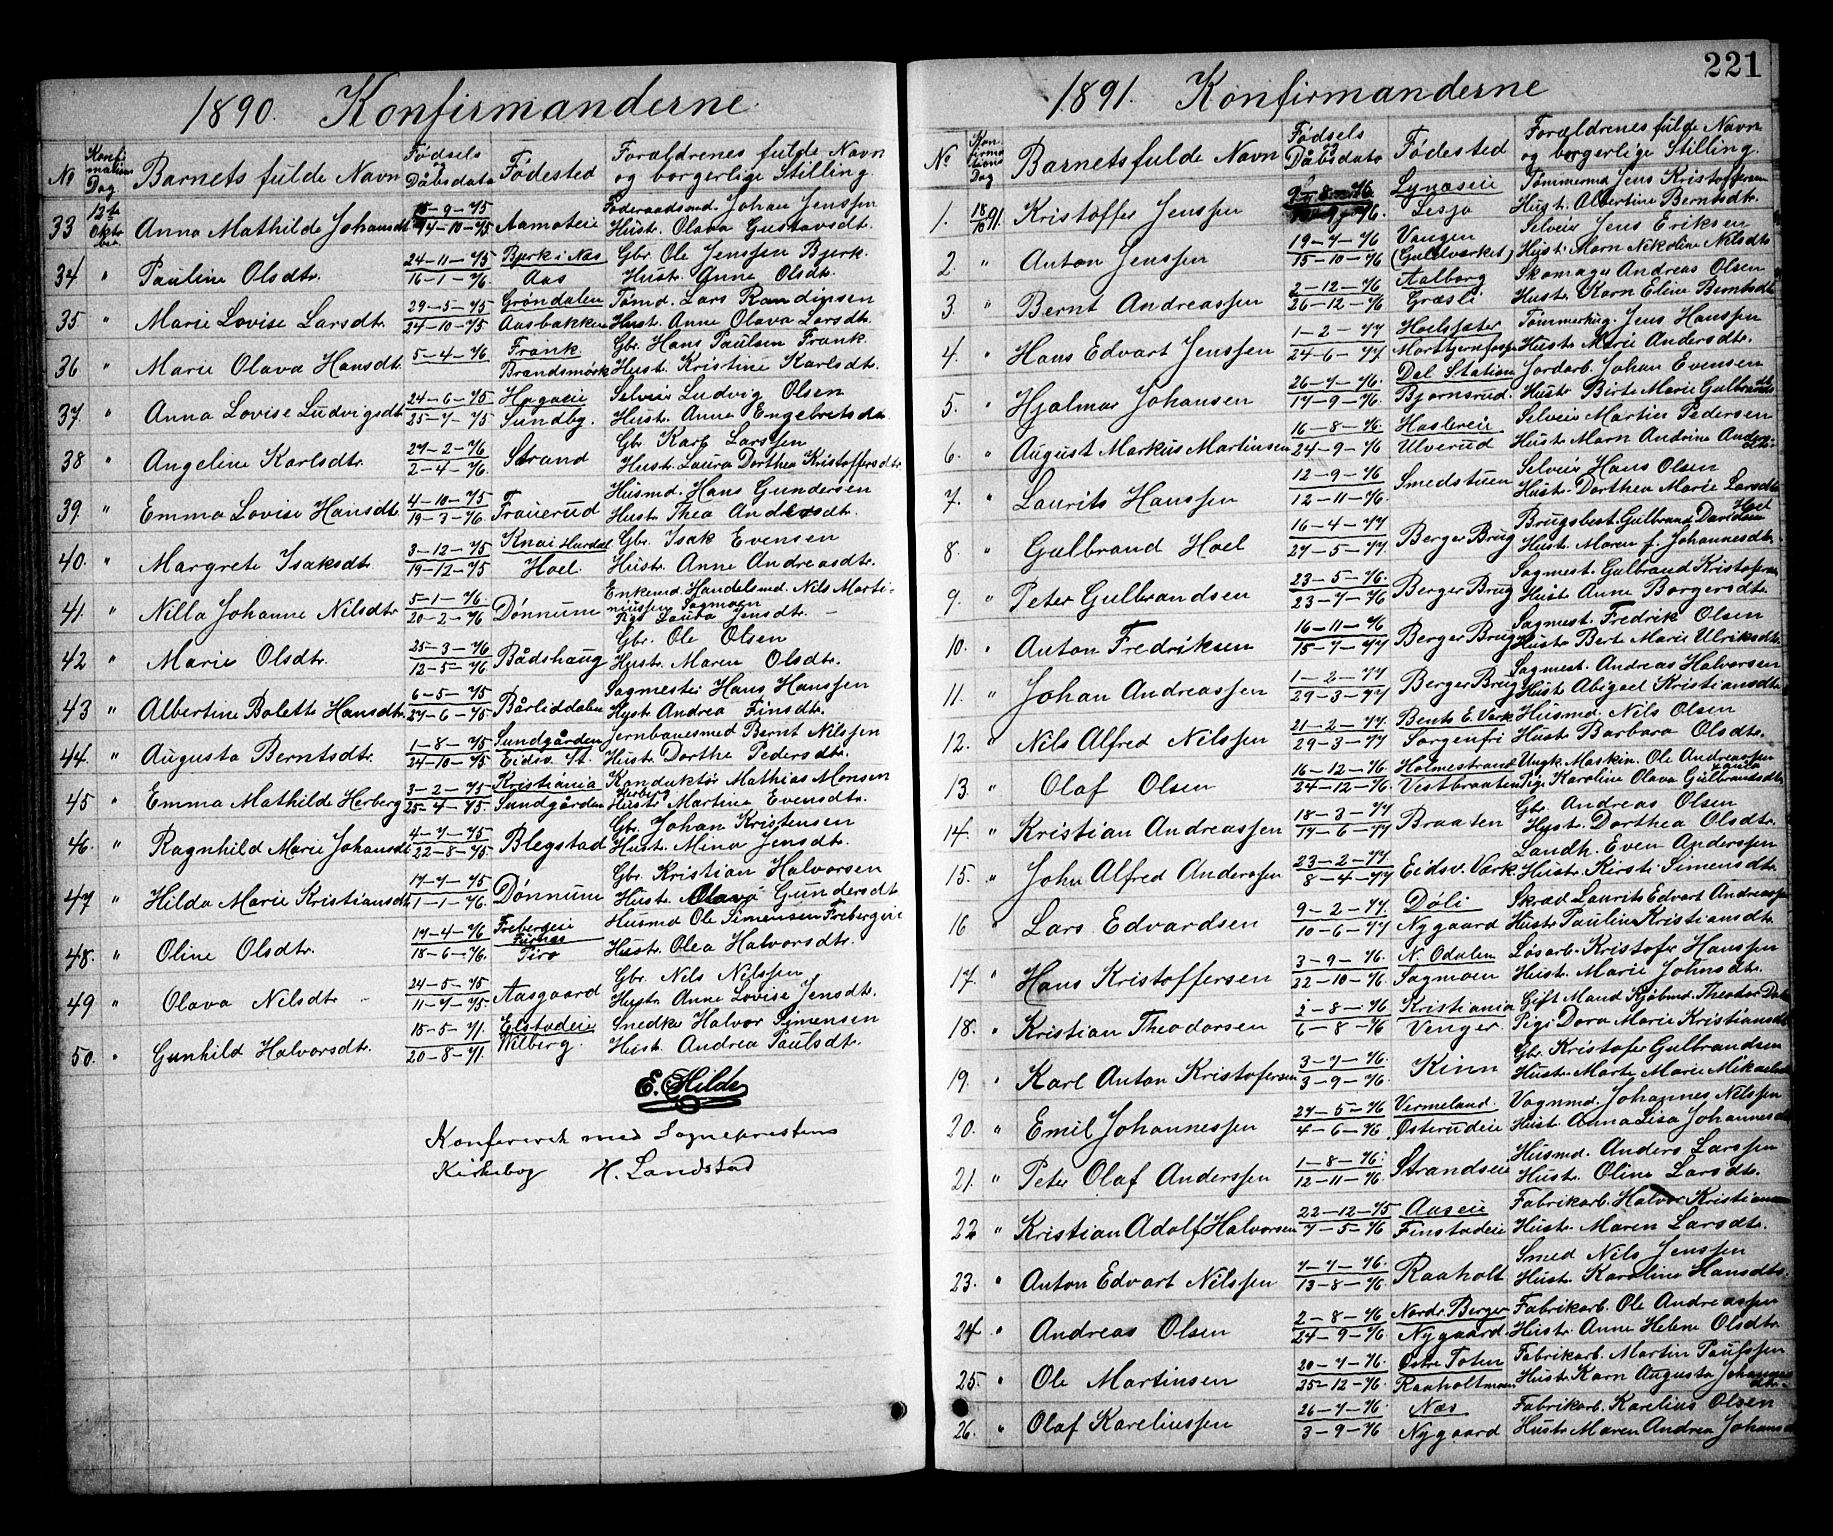 1890. Konfirmanderne.
№ Konfirmations Dag Barnets fulde Navn Fødsels og Dåbsdato Fødested Forældrenes fulde Navn og borgerlige Stilling.
33 12te Oktober Anna Mathilde Johansdtr 14-10-75 Aamoteie Føderaadsmd. Johan Jenssen Hustr. Olava Gustavsdtr.
34 " Pauline Olsdtr. 24-11-75 16-1-76 Bjerk i Nas Aas Gbr. Ole Jenssen Bjerk. Hustr. Anne Olsdtr.
35 " Marie Lovise Larsdtr. 29-5-75 24-10-75 Grøndalen Aasbakken Tømd. Lars Hustr. Anne Olava Larsdtr.
36 " Marie Olava Hansdtr. 5-4-76 Frank Brandsmørk Gbr. Hans Paulsen Frank. Hustr. Kristine Karlsdtr.
37. " Anna Lovise Ludvigsdtr 24-6-75 25-7-75 Hagaeie Sundby. Selveier Ludvig Olsen Hustr. Anne Engebretsdtr
38 " Angeline Karlsdtr. 27-2-76 2-4-76. Strand Gbr. Karl Larssen Hustr. Laura Dorthea Kristoffersdtr
39. " Emma Lovise Hansdtr 4-10-75 19-3-76. Trauerud Husmd. Hans Gundersen Hustr. Thea Andersdtr.
40. " Margrete Isaksdtr. 3-12-75 19-12-75 Knai Hurdal Hoel. Gbr. Isak Evensen Hustr. Anne Andreasdtr.
41. " Nilla Johanne Nilsdtr 5-1-76. 20-2-76 Dønnum Enkemd. Handelsmd. Nils Martiniussen Sagmoen Pige Laura Jensdtr. -
42 " Marie Olsdtr. 25-3-76 12-5-76 Bådshaug Gbr. Ole Olsen Hustr. Maren Olsdtr.
43 " Albertine Bolette Hansdtr. 6-5-75 27-6-75 Bårliddalen Sagmester Hans Hanssen Hustr Andrea Finsdtr.
44. " Augusta Berntsdtr. 1-8-75 24-10-75 Sundgården Eidsv. St. Jernbanesmed Bernt Nilssen Hustr. Dorthe Pedersdtr.
45 " Emma Mathilde Herberg 3-2-75 25-4-75 Kristiania Sundgården Konduktør Mathias Monsen Herberg Hustr Martina Evensdtr.
46. " Ragnhild Marie Johansdtr 4-7-75 22-8-75 Blegstad Gbr. Johan Kristensen Hustr. Mina Jensdtr.
47 " Hilda Marie Kristiansdtr. 17-7-75 1-1-76. Dønnum Gbr. Kristian Halvorsen Hustr Olava Gundersdtr
48. " Oline Olsdtr. 17-4-76 18-6-76. Frebergeie Furnes Husmd Ole Simensen Frebergeie Hustr. Olea Halvorsdtr.
49 " Olava Nilsdtr - 24-5-75 11-7-75 Aasgaard Gbr. Nils Nilssen Hustr. Anne Lovise Jensdtr.
50. " Gunhild Halvorsdtr. 15-5-71. 20-8-71. Elstadeie Wilberg. Snedker Halvor Simensen Hustr. Andrea Paulsdtr.
E. Hilde
Konfereret med Sogneprestens
Kirkebog H. Landstad
221
1891. Konfirmanderne
№ Konfirmations Dag Barnets fulde Navn Fødsels og Dåbsdato Fødested Forældrenes fulde Navn og borgerlige Stilling.
1. 18/10 91. Kristoffer Jenssen Lynæseie Lesja Tømmermd Jens Kristoffersen Hustr. Albertine Berntsdtr.
2. " Anton Jenssen 19-7-76 15-10-76 Vangen (Guldverket) Selveier Jens Eriksen Hustr. Marn Nikoline Nilsdtr
3. " Bernt Andreassen 2-12-76 26-12-76 Aalborg Græsli Skomager Andreas Olsen Hustr. Karn Eline Berntsdtr.
4. " Hans Edvart Jenssen 1-2-77 24-6-77 Hoelsjøter Tømmerhug. Jens Hanssen Hustr. Marie Andersdtr.
5. " Hjalmar Johansen 26-7-76. 17-9-76. Dal Station Bjørnsrud. Jordarb. Johan Evensen Hustr Birte Marie Gulbrandsdtr
6. " August Markus Martinsen 16-8-76. 24-9-76 Haslereie Ulverud Selveier Martin Pedersen Hustr. Marn Andrine Andersdtr.
7. " Laurits Hanssen 12-9-76 12-11-76. Smedstuen Selveier Hans Olsen Hustr. Dorthea Marie Larsdtr
8. " Gulbrand Hoel 16-4-77 27-5-77. Berger Brug Brugsbest. Gulbrand Davidsen Hoel Hustr. Maren f. Johannesdtr.
9. " Peter Gulbrandsen 23-5-76. 23-7-76 Berger Brug Sagmest. Gulbrand Kristofersen Hustr Anne Borgersdtr.
10. " Anton Fredriksen 16-11-76 15-7-77 Berger Brug Sagmest. Fredrik Olsen Hustr Bert Marie Ulriksdtr
11. " Johan Andreassen 1-2-77 29-3-77 Berger Brug Sagmest. Andreas Halvorsen Hustr. Abigael Kristiansdtr.
12. " Nils Alfred Nilssen 21-2-77. 29-3-77 Bents E. Værk Sorgenfri Husmd. Nils Olsen Hustr Barbara Olsdtr.
13. " Olaf Olsen 16-12-76 24-12-76. Holmestrand Vestbraaten Ungk. Maskin. Ole Andreassen Pige Karoline Olava Gulbrandsdtr
14. " Kristian Andreassen 18-3-77 17-6-77 Braaten Gbr. Andreas Olsen Hustr. Dorthea Olsdtr.
15. " John Alfred Anderssen 23-2-77. 8-4-77 Eidsv. Værk Landh. Even Anderssen Hustr. Kirsti Simensdtr.
16 " Lars Edvardsen 9-2-77 10-6-77 Døli Nygaard Skræd. Laurits Edvart Andreassen Hustr Pauline Kristiansdtr.
17. " Hans Kristoffersen 3-9-76. 22-10-76. N. Odalen Sagmoen Løsarb. Kristofer Hanssen Hustr. Marie Johnsdtr.
18. " Kristian Theodorsen 2-8-76 6-8-76 Kristiania Venger. Gift Mand Kjøbmd. Theodor Dahl Pige Dora Marie Kristiansdtr
19. " Karl Anton Kristofersen 3-7-76. 3-9-76. Kinn Gbr. Kristofer Gulbrandsen Hustr. Marte Marie Mikaelsdtr
20. " Emil Johannessen 27-5-76 4-6-76 Vermeland. Østerudeie Vognmd. Johannes Nilssen Hustr. Anna Lisa Johannesdtr
21. " Peter Olaf Anderssen 1-8-76. 12-11-76. Strandseie Husmd. Anders Larssen Hustr. Oline Larsdtr.
22 " Kristian Adolf Halvorsen 22-12-75 7-5-76 Aaseie Finstadeie Fabrikarb. Halvor Kristiansen Hustr. Maren Larsdtr.
23. " Anton Edvart Nilssen 7-7-76. 13-8-76 Raaholt Smed Nils Jenssen Hustr. Karoline Hansdtr.
24 " Andreas Olsen 2-8-76 24-9-76 Nordr. Berger Nygaard. Fabrikarb. Ole Andreassen Hustr. Anne Helene Olsdtr.
25. " Ole Martinsen 20-7-76. 25-12-76. Østre Toten Raaholtmoen Fabrikarb. Martin Paulssen Hustr. Karn Augusta Johannesdtr.
26. " Olaf Kareliussen 26-7-76. 3-9-76. Næs Nygaard Fabrikarb. Karelius Olsen Hustr. Maren Andrea Johansdtr